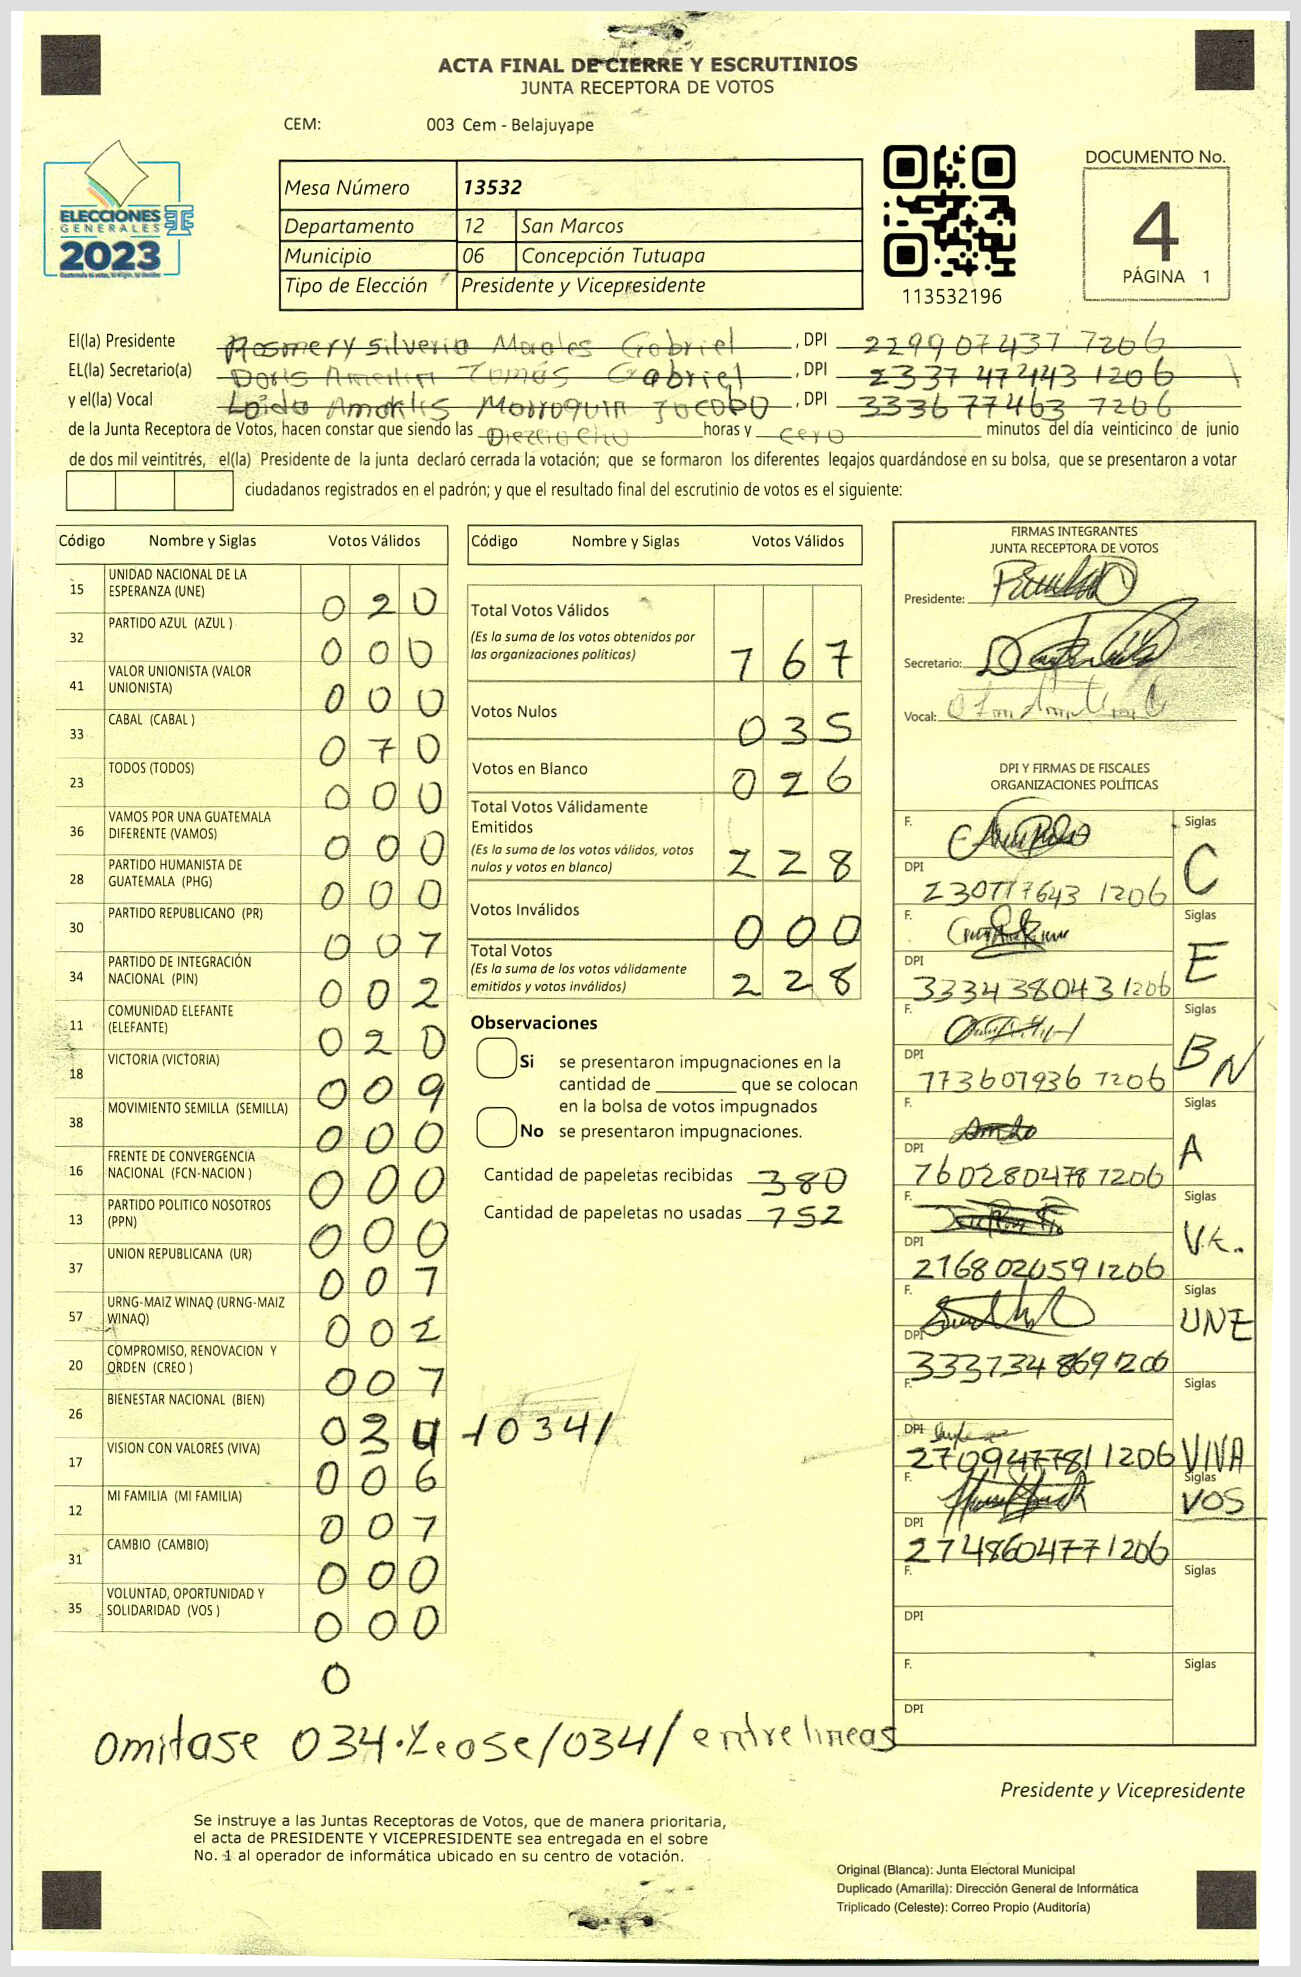 ACTA FINAL DE CIERRE Y ESCRUTINIOS
JUNTA RECEPTORA DE VOTOS
CEM: 003 Cem - Belajuyape
ELECCIONES
GENERALES
2023
Mesa Número 13532
Departamento 12 San Marcos
Municipio 06 Concepción Tutuapa
Tipo de Elección Presidente y Vicepresidente
113532196
DOCUMENTO No.
4
PÁGINA 1
El(la) Presidente Rosmery Silveria Morales Gabriel, DPI 2299074377206
EL(la) Secretario(a) Doris Tomás Gabriel, DPI 2337474431206
y el(la) Vocal Loida Amarilis Marroquin Jocobo, DPI 3336774637206
de la Junta Receptora de Votos, hacen constar que siendo las Dieciocho horas y cero minutos del día veinticinco de junio
de dos mil veintitrés, el(la) Presidente de la junta declaró cerrada la votación; que se formaron los diferentes legajos quardándose en su bolsa, que se presentaron a votar
ciudadanos registrados en el padrón; y que el resultado final del escrutinio de votos es el siguiente:
Código Nombre y Siglas Votos Válidos
15 UNIDAD NACIONAL DE LA
ESPERANZA (UNE) 020
32 PARTIDO AZUL (AZUL ) 000
41 VALOR UNIONISTA (VALOR
UNIONISTA) 000
33 CABAL (CABAL ) 070
23 TODOS (TODOS) 000
36 VAMOS POR UNA GUATEMALA
DIFERENTE (VAMOS) 000
28 PARTIDO HUMANISTA DE
GUATEMALA (PHG) 000
30 PARTIDO REPUBLICANO (PR) 007
34 PARTIDO DE INTEGRACIÓN
NACIONAL (PIN) 002
11 COMUNIDAD ELEFANTE
(ELEFANTE) 020
18 VICTORIA (VICTORIA) 009
38 MOVIMIENTO SEMILLA (SEMILLA) 000
16 FRENTE DE CONVERGENCIA
NACIONAL (FCN-NACION ) 000
13 PARTIDO POLITICO NOSOTROS
(PPN) 000
37 UNION REPUBLICANA (UR) 007
57 URNG-MAIZ WINAQ (URNG-MAIZ
WINAQ) 002
20 COMPROMISO, RENOVACION Y
ORDEN (CREO ) 007
26 BIENESTAR NACIONAL (BIEN) 034 /034/
17 VISION CON VALORES (VIVA) 006
12 MI FAMILIA (MI FAMILIA) 007
31 CAMBIO (CAMBIO) 000
35 VOLUNTAD, OPORTUNIDAD Y
SOLIDARIDAD (VOS ) 000
0
Código Nombre y Siglas Votos Válidos
Total Votos Válidos
(Es la suma de los votos obtenidos por
las organizaciones políticas) 767
Votos Nulos 035
Votos en Blanco 026
Total Votos Válidamente
Emitidos
(Es la suma de los votos válidos, votos
nulos y votos en blanco) 228
Votos Inválidos 000
Total Votos
(Es la suma de los votos válidamente
emitidos y votos inválidos) 228
Observaciones
Si se presentaron impugnaciones en la
cantidad de que se colocan
en la bolsa de votos impugnados
No se presentaron impugnaciones.
Cantidad de papeletas recibidas 380
Cantidad de papeletas no usadas 752
FIRMAS INTEGRANTES
JUNTA RECEPTORA DE VOTOS
Presidente:
Secretario:
Vocal:
DPI Y FIRMAS DE FISCALES
ORGANIZACIONES POLÍTICAS
F. Siglas
DPI C
230777643 1206
F. Siglas
DPI E
3334380431206
F. Siglas
DPI BN
7736079367206
F. Siglas
DPI A
7602804787206
F. Siglas
DPI V.K.
2768020591206
F. Siglas
DPI UNE
3337348691206
F. Siglas
DPI
2709477811206 VIVA
F. Siglas
DPI VOS
2748604771206
F. Siglas
DPI
F. Siglas
DPI
omitase 034. Lease /034/ entre lineas
Presidente y Vicepresidente
Se instruye a las Juntas Receptoras de Votos, que de manera prioritaria,
el acta de PRESIDENTE Y VICEPRESIDENTE sea entregada en el sobre
No. 1 al operador de informática ubicado en su centro de votación.
Original (Blanca): Junta Electoral Municipal
Duplicado (Amarilla): Dirección General de Informática
Triplicado (Celeste): Correo Propio (Auditoría)